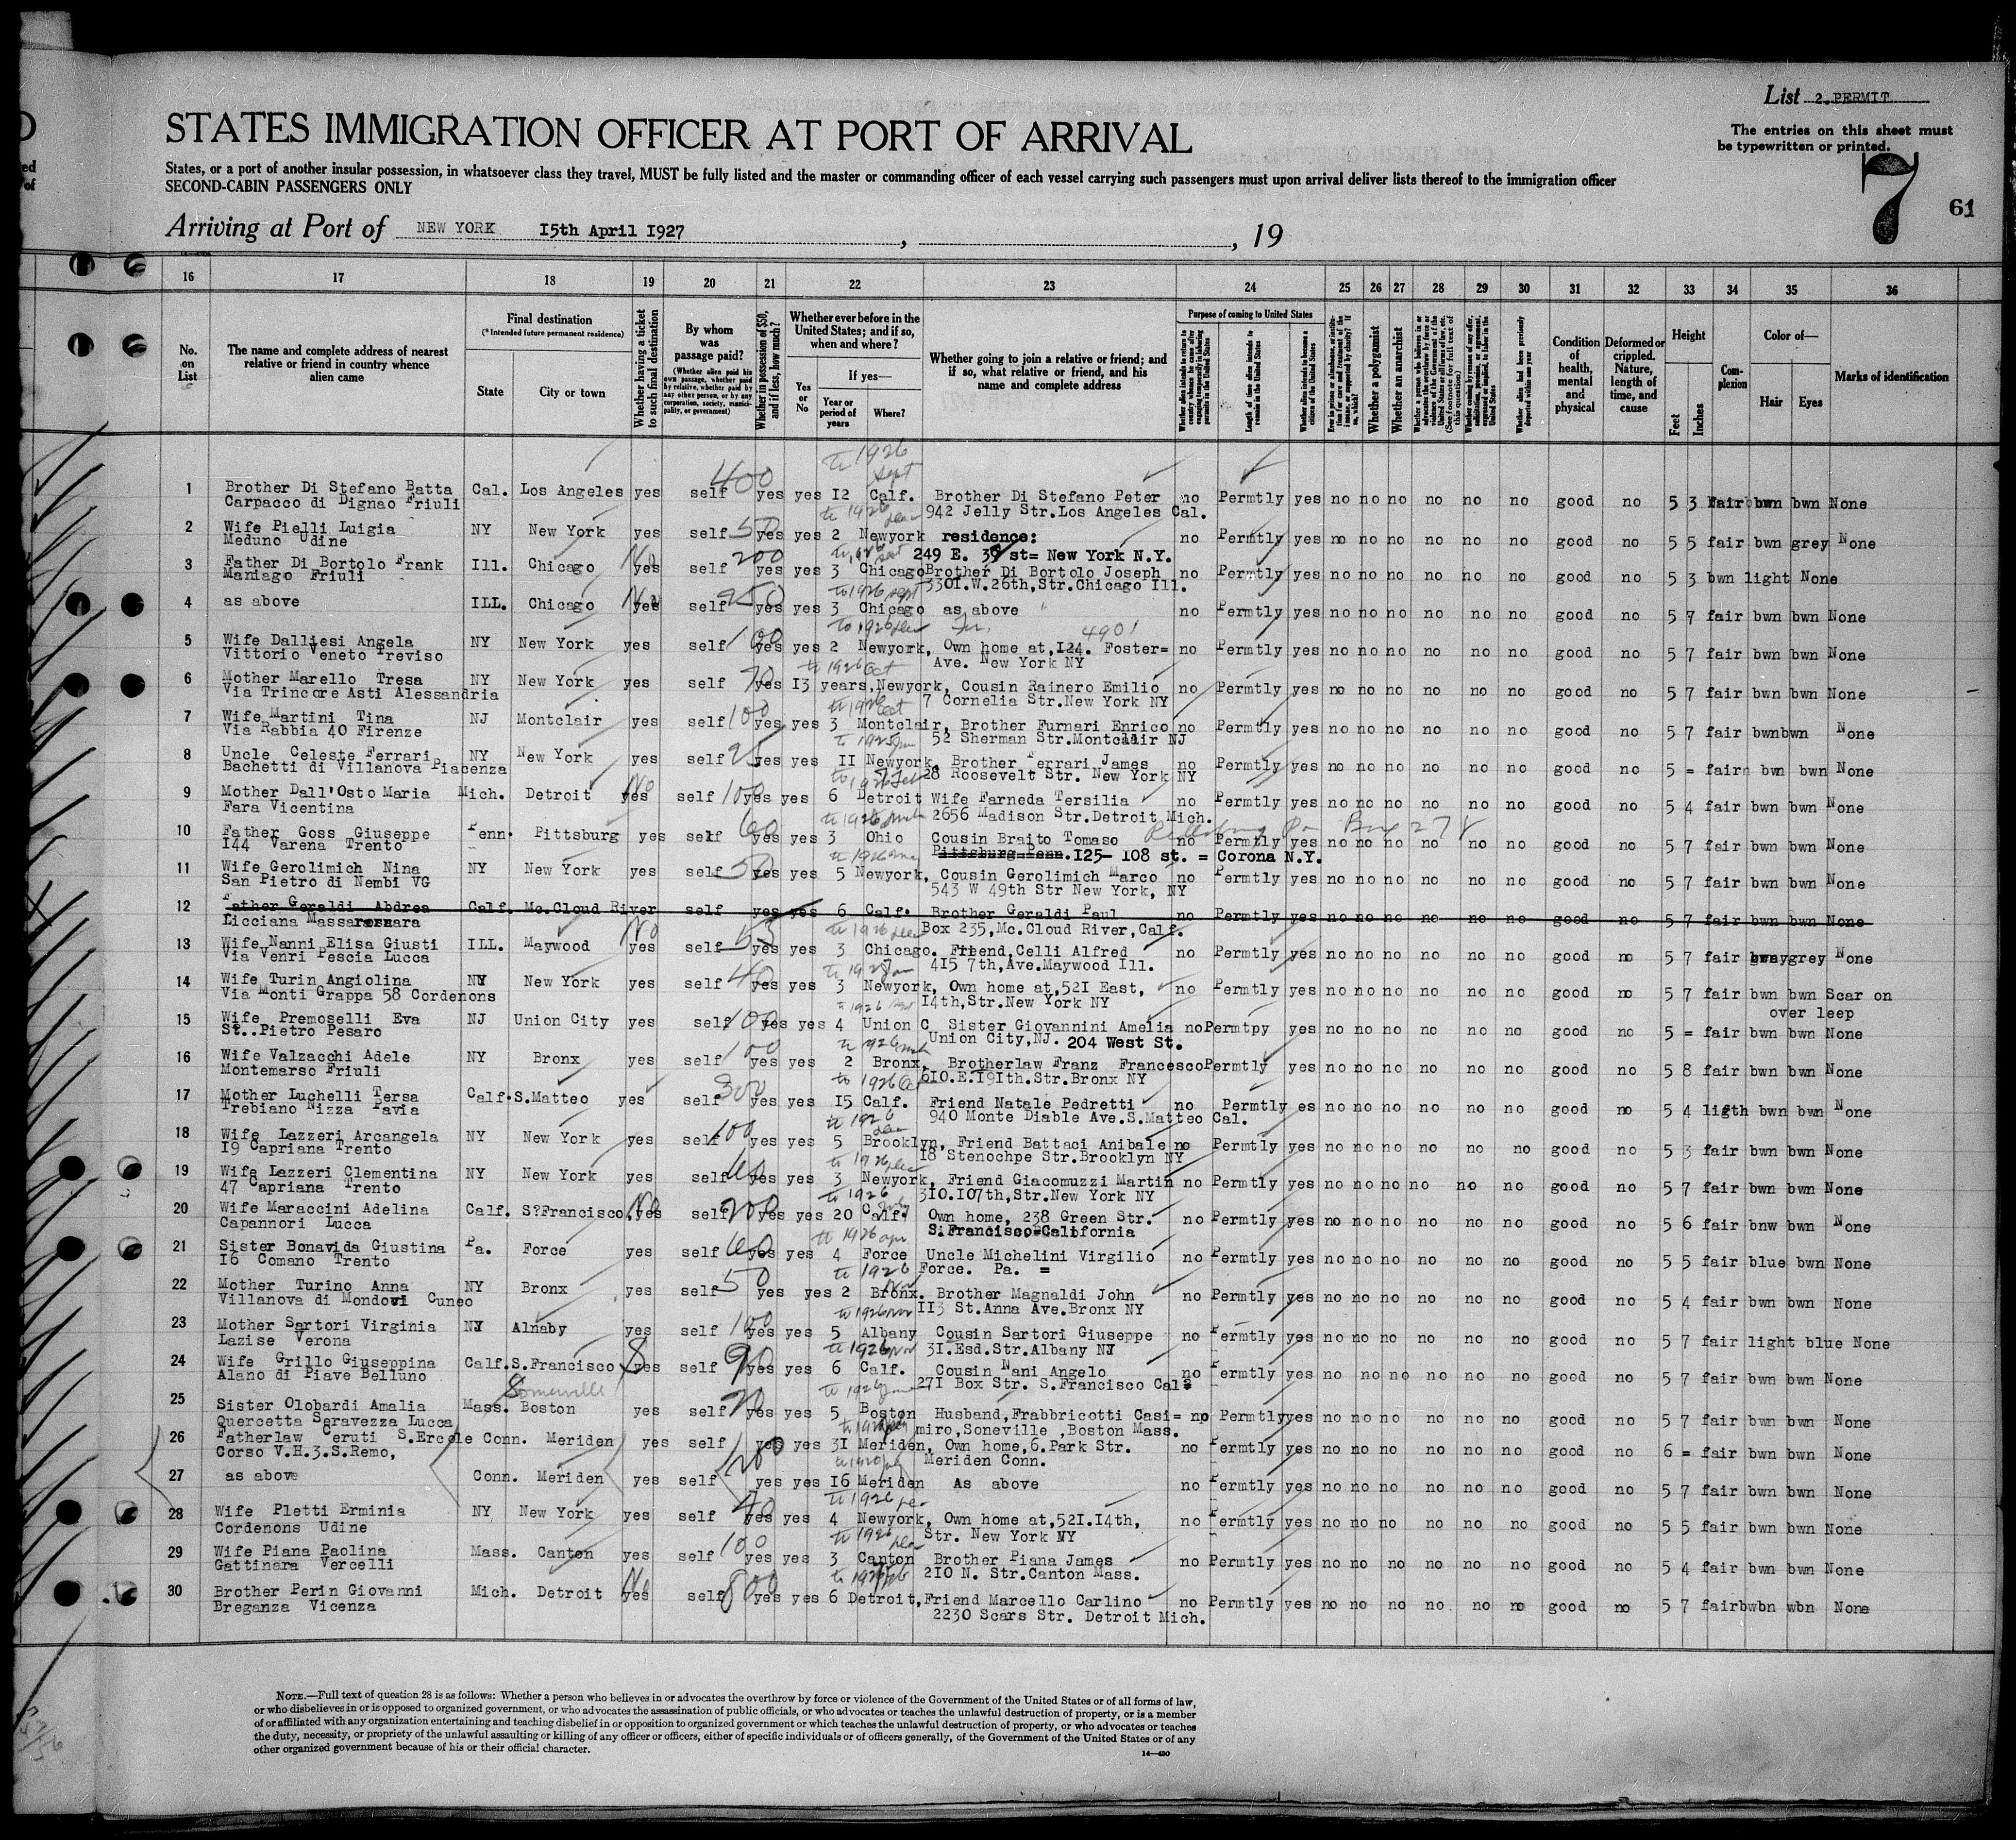 List 2. PERMIT
STATES IMMIGRATION OFFICER AT PORT OF ARRIVAL
The entries on this sheet must
be typewritten or printed.
States, or a port of another insular possession, in whatsoever class they travel, MUST be fully listed and the master or commanding officer of each vessel carrying such passengers must upon arrival deliver lists thereof to the immigration officer
SECOND-CABIN PASSENGERS ONLY
7
61
Arriving at Port of NEW YORK 15th April 1927 , , 19
16 17 18 19 20 21 22 23 24 25 26 27 28 29 30 31 32 33 34 35 36
No. on List
The name and complete address of nearest relative or friend in country whence alien came
Final destination
(*Intended future permanent residence)
State
City or town
Whether having a ticket to such final destination
By whom was passage paid?
(Whether alien paid his own passage, whether paid by relative, whether paid by any other person, or by any corporation, society, municipality, or government)
Whether in possession of $50, and if less, how much?
Whether ever before in the United States; and if so, when and where?
Yes or No
If yes—
Year or period of years
Where?
Whether going to join a relative or friend; and if so, what relative or friend, and his name and complete address
Purpose of coming to United States
Length of time alien intends to remain in the United States
Whether alien intends to become a citizen of the United States
Whether a polygamist
Whether an anarchist
Whether alien had been previously deported within one year
Condition of health, mental and physical
Deformed or crippled. Nature, length of time, and cause
Height
Feet
Inches
Complexion
Color of—
Hair
Eyes
Marks of identification
1 Brother Di Stefano Batta Cal. Los Angeles yes self 400 yes yes 12 Calf. to 1926 Sept Brother Di Stefano Peter no Permtly yes no no no no no no good no 5 3 fair bwn bwn None
Carpacco di Dignao Friuli 942 Jelly Str.Los Angeles Cal.
2 Wife Pielli Luigia NY New York yes self 50 yes yes 2 Newyork residence: no Permtly yes no no no no no no good no 5 5 fair bwn grey None
Meduno Udine 249 E. 39 st= New York N.Y.
3 Father Di Bortolo Frank Ill. Chicago No yes self 200 yes yes 3 Chicago Brother Di Bortolo Joseph no Permtly yes no no no no no no good no 5 3 bwn light None
Maniago Friuli 3301.W.26th,Str.Chicago Ill.
4 as above ILL. Chicago yes self 250 yes yes 3 Chicago as above " no Permtly yes no no no no no no good no 5 7 fair bwn bwn None
5 Wife Dalliesi Angela NY New York yes self 100 yes yes 2 Newyork, Own home at,124. 4901 Foster= no Permtly yes no no no no no no good no 5 7 fair bwn bwn None
Vittorio Veneto Treviso Ave. New York NY
6 Mother Marello Tresa NY New York yes self 70 yes 13 years,Newyork, Cousin Rainero Emilio no Permtly yes no no no no no no good no 5 7 fair bwn bwn None
Via Trincore Asti Alessandria 7 Cornelia Str.New York NY
7 Wife Martini Tina NJ Montclair yes self 100 yes yes 3 Montclair, Brother Furnari Enrico no Permtly yes no no no no no no good no 5 7 fair bwnbwn None
Via Rabbia 40 Firenze 52 Sherman Str.Montclair NJ
8 Uncle Celeste Ferrari NY New York yes self 25 yes yes 11 Newyork, Brother Ferrari James no Permtly yes no no no no no no good no 5 = fair bwn bwn None
Bachetti di Villanova Piacenza 28 Roosevelt Str. New York NY
9 Mother Dall'Osto Maria Mich. Detroit No yes self 100 yes yes 6 Detroit Wife Farneda Tersilia no Permtly yes no no no no no no good no 5 4 fair bwn bwn None
Fara Vicentina 2656 Madison Str.Detroit Mich.
10 Father Goss Giuseppe Penn. Pittsburg yes self 60 yes yes 3 Ohio Cousin Braito Tomaso no Permtly yes no no no no no no good no 5 7 fair bwn bwn None
144 Varena Trento Pittsburg Penn. 125- 108 st. = Corona N.Y.
11 Wife Gerolimich Nina NY New York yes self 50 yes yes 5 Newyork, Cousin Gerolimich Marco no Permtly yes no no no no no no good no 5 7 fair bwn bwn None
San Pietro di Nembi VG 543 W 49th Str New York, NY
12 Father Geraldi Abdrea Calf. Mc.Cloud River self yes yes 6 Calf. Brother Geraldi Paul no Permtly yes no no no no no no good no 5 7 fair bwn bwn None
Licciana Box 235,Mc.Cloud River,Calf.
13 Wife Nanni Elisa Giusti ILL. Maywood No yes self 53 yes yes 3 Chicago. Friend,Celli Alfred no Permtly yes no no no no no no good no 5 7 fair grey None
Via Venri Pescia Lucca 415 7th,Ave.Maywood Ill.
14 Wife Turin Angiolina NY New York yes self 40 yes yes 3 Newyork, Own home at,521 East, no Permtly yes no no no no no no good no 5 7 fair bwn bwn Scar on
Via Monti Grappa 58 Cordenons 14th,Str.New York NY over leep
15 Wife Premoselli Eva NJ Union City yes self 100 yes yes 4 Union C, Sister Giovannini Amelia no Permtpy yes no no no no no no good no 5 = fair bwn bwn None
St..Pietro Pesaro Union City,NJ. 204 West St.
16 Wife Valzacchi Adele NY Bronx yes self 100 yes yes 2 Bronx, Brotherlaw Franz Francesco Permtly yes no no no no no no good no 5 8 fair bwn bwn None
Montemarso Friuli 610.E.191th.Str.Bronx NY
17 Mother Luchelli Tersa Calf. S.Matteo yes self 300 yes yes 15 Calf. Friend Natale Pedretti no Permtly es no no no no no no good no 5 4 ligth bwn bwn None
Trebiano Nizza Pavia 940 Monte Diable Ave.S.Matteo Cal.
18 Wife Lazzeri Arcangela NY New York yes self 100 yes yes 5 Brooklyn, Friend Battaci Anibale no Permtly yes no no no no no no good no 5 3 fair bwn bwn None
19 Capriana Trento 18,Stenochpe Str.Brooklyn NY
19 Wife Lazzeri Clementina NY New York yes self 60 yes yes 3 Newyork, Friend Giacomuzzi Martin no Permtly yes no no no no no no good no 5 7 fair bwn bwn None
47 Capriana Trento 310.107th,Str.New York NY
20 Wife Maraccini Adelina Calf. S?Francisco, No yes self 200 yes yes 20 Calf. Own home, 238 Green Str. no Permtly yes no no no no no no good no 5 6 fair bnw bwn None
Capannori Lucca S.Francisco=California
21 Sister Bonavida Giustina Pa. Force yes self 60 yes yes 4 Force Uncle Michelini Virgilio no Permtly yes no no no no no no good no 5 5 fair blue bwn None
16 Comano Trento Force. Pa. =
22 Mother Turino Anna NY Bronx yes self 50 yes yes 2 Bronx. Brother Magnaldi John no Permtly yes no no no no no no good no 5 4 fair bwn bwn None
Villanova di Mondovi Cuneo 113 St.Anna Ave.Bronx NY
23 Mother Sartori Virginia NJ Alnaby yes self 100 yes yes 5 Albany Cousin Sartori Giuseppe no Permtly yes no no no no no no good no 5 7 fair light blue None
Lazise Verona 31.Esd.Str.Albany NJ
24 Wife Grillo Giuseppina Calf. S.Francisco yes self 90 yes yes 6 Calf. Cousin Nani Angelo no Permtly yes no no no no no no good no 5 7 fair bwn bwn None
Alano di Piave Belluno 271 Box Str. S.Francisco Cal
Somerville
25 Sister Olobardi Amalia Mass. Boston yes self 20 yes yes 5 Boston Husband,Frabbricotti Casi= no Permtly yes no no no no no no good no 5 7 fair bwn bwn None
Quercetta Saravezza Lucca miro,Soneville ,Boston Mass.
26 Fatherlaw Ceruti S.Ercole Conn. Meriden yes self yes yes 31 Meriden, Own home,6.Park Str. no Permtly yes no no no no no no good no 6 = fair bwn bwn None
Corso V.H.3.S.Remo, Meriden Conn.
27 as above Conn. Meriden yes self yes yes 16 Meriden As above no Permtly yes no no no no no no good no 5 7 fair bwn bwn None
28 Wife Pletti Erminia NY New York yes self 40 yes yes 4 Newyork, Own home at,521.14th, no Permtly yes no no no no no no good no 5 5 fair bwn bwn None
Cordenons Udine Str. New York NY
29 Wife Piana Paolina Mass. Canton yes self 100 yes yes 3 Canton Brother Piana James no Permtly yes no no no no no no good no 5 4 fair bwn bwn None
Gattinara Vercelli 210 N. Str.Canton Mass.
30 Brother Perin Giovanni Mich. Detroit No yes self 800 yes yes 6 Detroit,Friend Marcello Carlino no Permtly yes no no no no no no good no 5 7 fairbwbn wbn None
Breganza Vicenza 2230 Scars Str. Detroit Mich.
NOTE.—Full text of question 28 is as follows: Whether a person who believes in or advocates the overthrow by force or violence of the Government of the United States or of all forms of law,
or who disbelieves in or is opposed to organized government, or who advocates the assassination of public officials, or who advocates or teaches the unlawful destruction of property, or is a member
of or affiliated with any organization entertaining and teaching disbelief in or opposition to organized government or which teaches the unlawful destruction of property, or who advocates or teaches
the duty, necessity, or propriety of the unlawful assaulting or killing of any officer or officers, either of specific individuals or of officers generally, of the Government of the United States or of any
other organized government because of his or their official character.
14—430